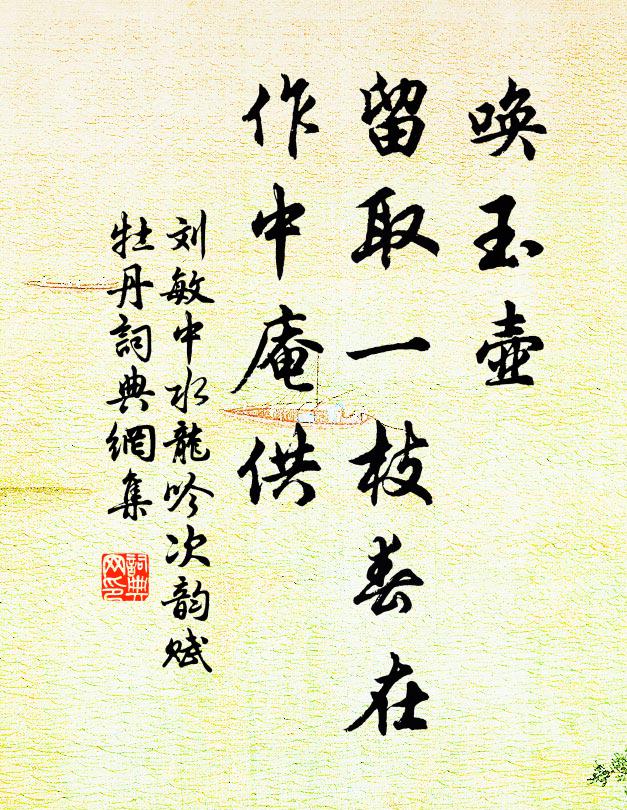 唤玉壶
留取一枝春在
作中庵供
刘敏中水龍吟次韵赋
牡丹詞典網集
詞典
网印